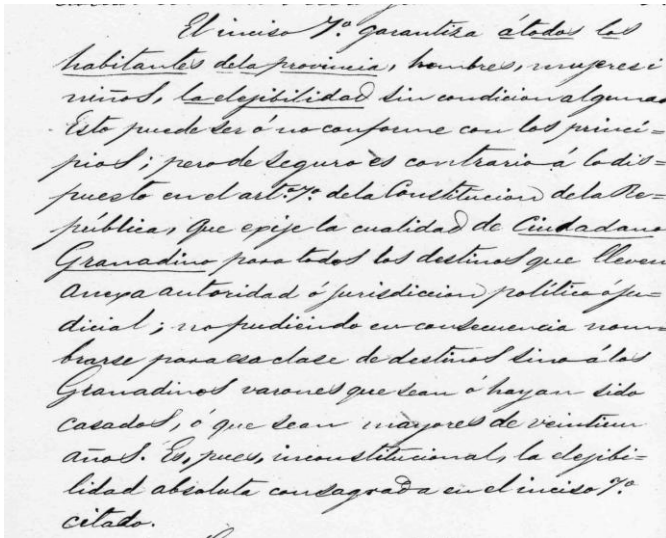 El inciso 7.º garantiza á todos los
habitantes de la provincia, hombres, mujeres i
niños, la elejibilidad sin condicion alguna.
Esto puede ser ó no conforme con los princi=
pios; pero de seguro es contrario á lo dis=
puesto en el art.º 7.º de la Constitucion de la Re=
pública, que exije la cualidad de Ciudadano
Granadino para todos los destinos que lleven
anexa autoridad ó jurisdiccion política ó ju=
dicial; no pudiendo en consecuencia nom=
brarse para esa clase de destinos sino á los
Granadinos varones que sean ó hayan sido
casados, ó que sean mayores de veintiun
años. Es, pues, inconstitucional, la elejibi=
lidad absoluta consagrada en el inciso 7.º
citado.